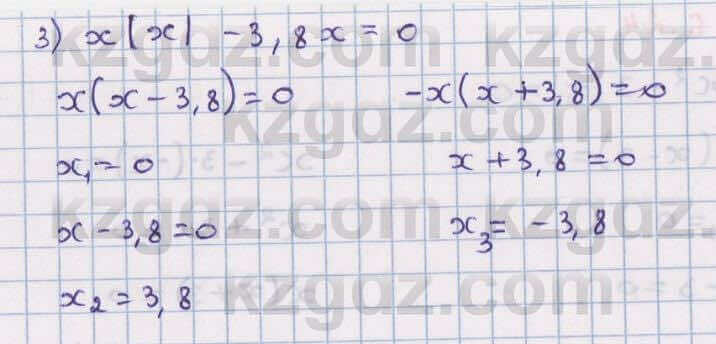 3) x|x| - 3,8x = 0
x(x - 3,8) = 0 -x(x + 3,8) = 0
x₁ = 0 x + 3,8 = 0
x - 3,8 = 0 x₃ = - 3,8
x₂ = 3,8
kzgdz.com
kzgdz.com
kzgdz.com
kzgdz.com
kzgdz.com